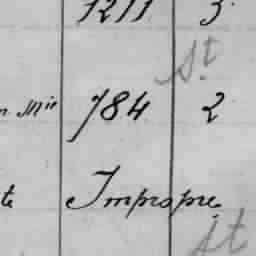 1211 3
St
n Mie 784 2
te Impropre
St